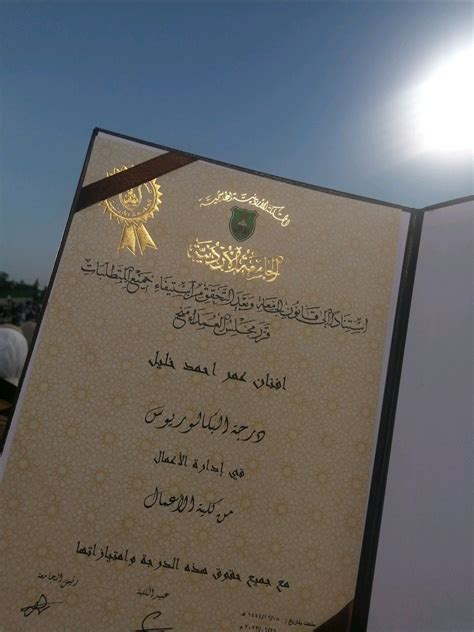 المملكة الأردنية الهاشمية
الجامعة الأردنية
استناداً إلى قانون الجامعة وبعد التحقق من استيفاء جميع المتطلبات
قرر مجلس العمداء منح
افنان عمر احمد خليل
درجة البكالوريوس
في إدارة الأعمال
من كلية الأعمال
مع جميع حقوق هذه الدرجة وامتيازاتها
عميد الكلية
رئيس الجامعة